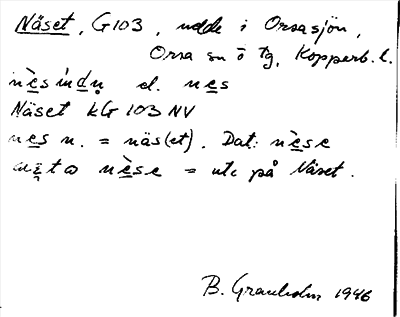 Näset, G103, udde i Orsasjön,
Orsa sn ö tg, Kopperb. l.
nèsíndn̥ el. nes
Näset kG 103 NV
nes n. = näs(et). Dat: nèse
nèse = ute på Näset.
B. Granholm 1946